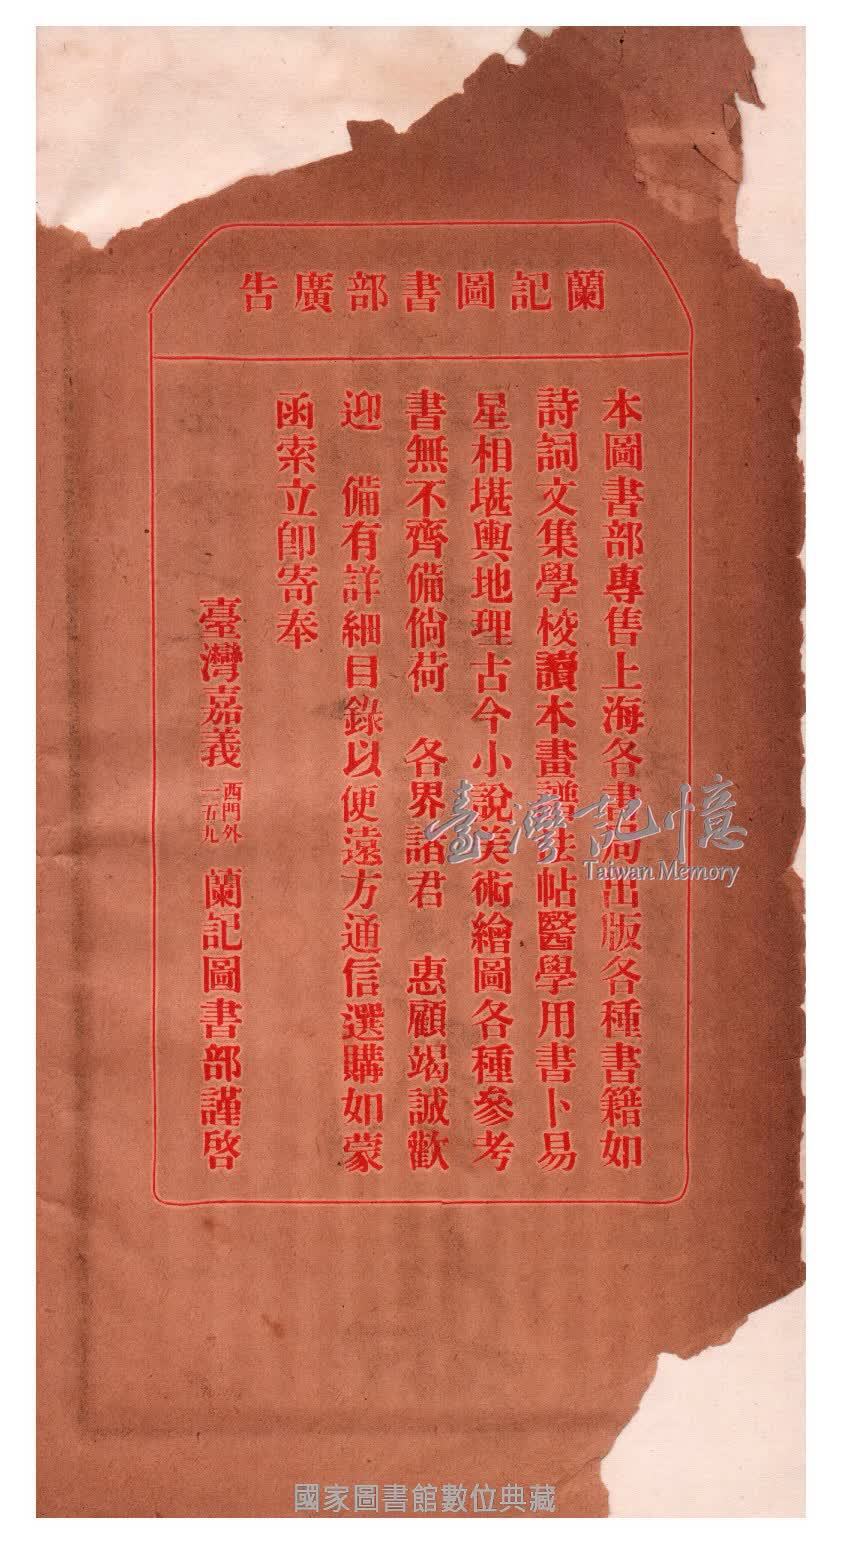 蘭記圖書部廣告
本圖書部專售上海各書局出版各種書籍如
詩詞文集學校讀本畫譜法帖醫學用書卜易
星相堪輿地理古今小說美術繪圖各種參考
書無不齊備倘荷 各界諸君 惠顧竭誠歡
迎 備有詳細目錄以便遠方通信選購如蒙
函索立即寄奉
臺灣嘉義 西門外 一五九 蘭記圖書部謹啓
臺灣記憶
Taiwan Memory
國家圖書館數位典藏